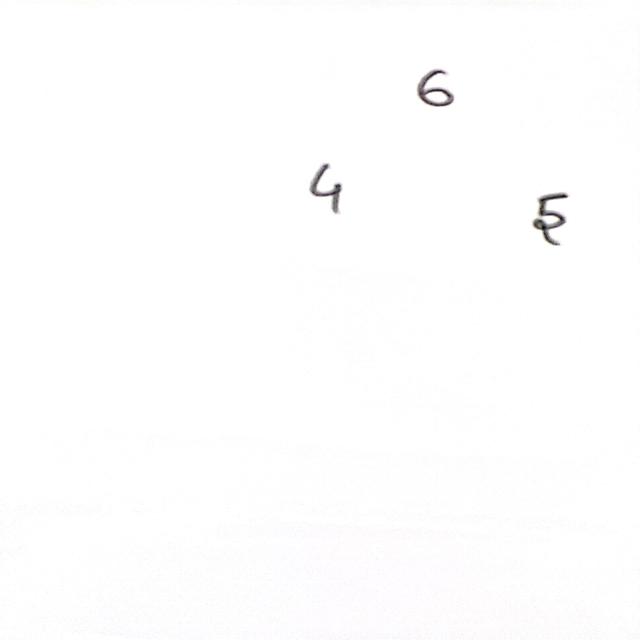 6
4
5